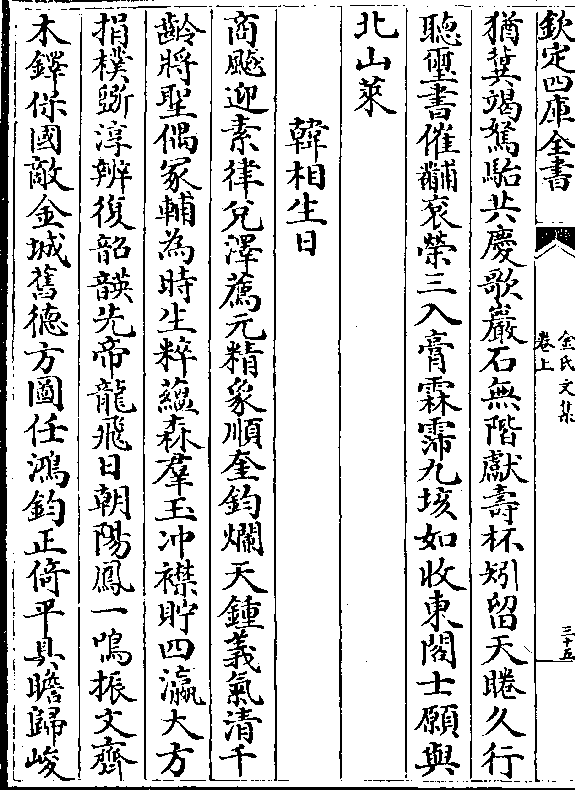 欽定四庫全書
金氏文集
卷上
三十五
猶冀竭駑駘共慶歌巖石無階獻壽杯矧留天睠久行
聽璽書催黼衮榮三入膏霖霈九垓如收東閣士願與
北山萊
韓相生日
商飈迎素律兌澤薦元精象順奎鈞爛天鍾義氣清千
齡將聖偶冢輔為時生粹藴森羣玉冲襟貯四瀛大方
捐樸斵淳辨復韶韺先帝龍飛日朝陽鳳一鳴振文齊
木鐸保國敵金城舊德方圖任鴻鈞正倚平具瞻歸峻